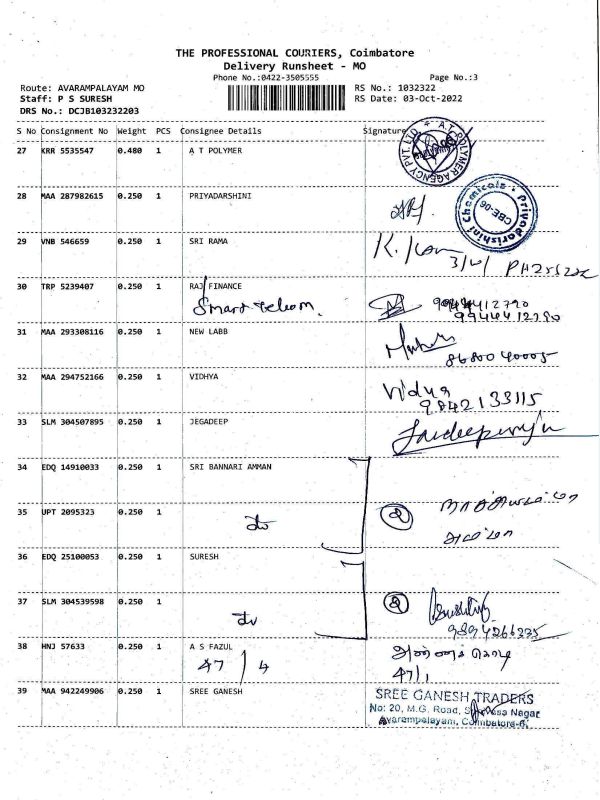 THE PROFESSIONAL COURIERS, Coimbatore
Delivery Runsheet - MO
Phone No.:0422-3505555 Page No.:3
Route: AVARAMPALAYAM MO RS No.: 1032322
Staff: P S SURESH RS Date: 03-Oct-2022
DRS No.: DCJB103232203
S No Consignment No Weight PCS Consignee Details Signature
27 KRR 5535547 0.480 1 A T POLYMER
A.T. POLYMER AGENCY PVT. LTD.
28 MAA 287982615 0.250 1 PRIYADARSHINI
Priyadarishini Chemicals
CBE-06
29 VNB 546659 0.250 1 SRI RAMA
30 TRP 5239407 0.250 1 RAJ FINANCE
Smart telecom
9944412790
31 MAA 293308116 0.250 1 NEW LABB
8680040005
32 MAA 294752166 0.250 1 VIDHYA
Vidya
9842133115
33 SLM 304507895 0.250 1 JEGADEEP
34 EDQ 14910033 0.250 1 SRI BANNARI AMMAN
35 UPT 2095323 0.250 1
2
36 EDQ 25100053 0.250 1 SURESH
37 SLM 304539598 0.250 1
2
9894266235
38 HNJ 57633 0.250 1 A S FAZUL
47/4
47/1
39 MAA 942249906 0.250 1 SREE GANESH
SREE GANESH TRADERS
No: 20, M.G. Road, Nagar
Avarampalayam, Coimbatore-6.